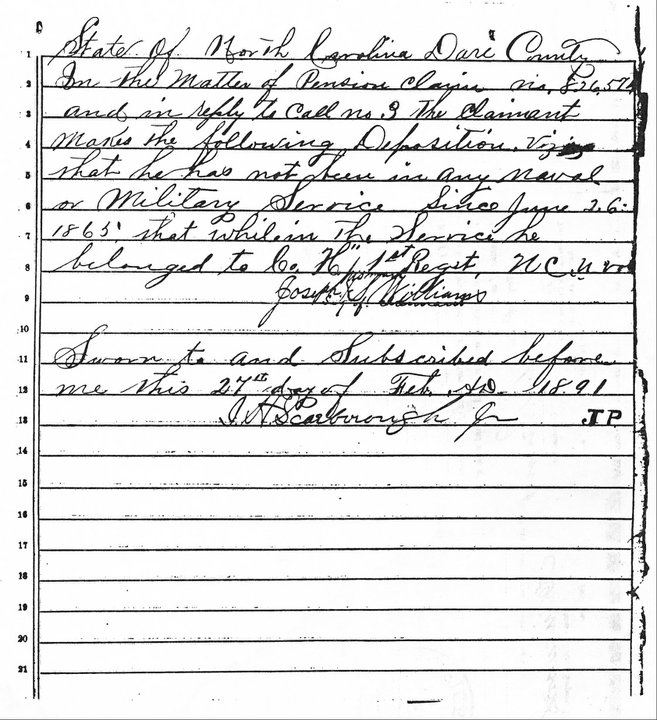 1 State of North Carolina Dare County
2 In the Matter of Pension claim no. 826,574
3 and in reply to Call no. 3 the Claimant
4 makes the following Deposition, Viz
5 that he has not been in any naval
6 or Military Service Since June 26
7 1865 that while in the Service he
8 belonged to Co. "H" 1st Regt, N C.
9 Joseph S. Williams
10
11 Sworn to and Subscribed before
12 me this 27th day of Feb. AD. 1891
13 Scarborough Jr JP
14
15
16
17
18
19
20
21